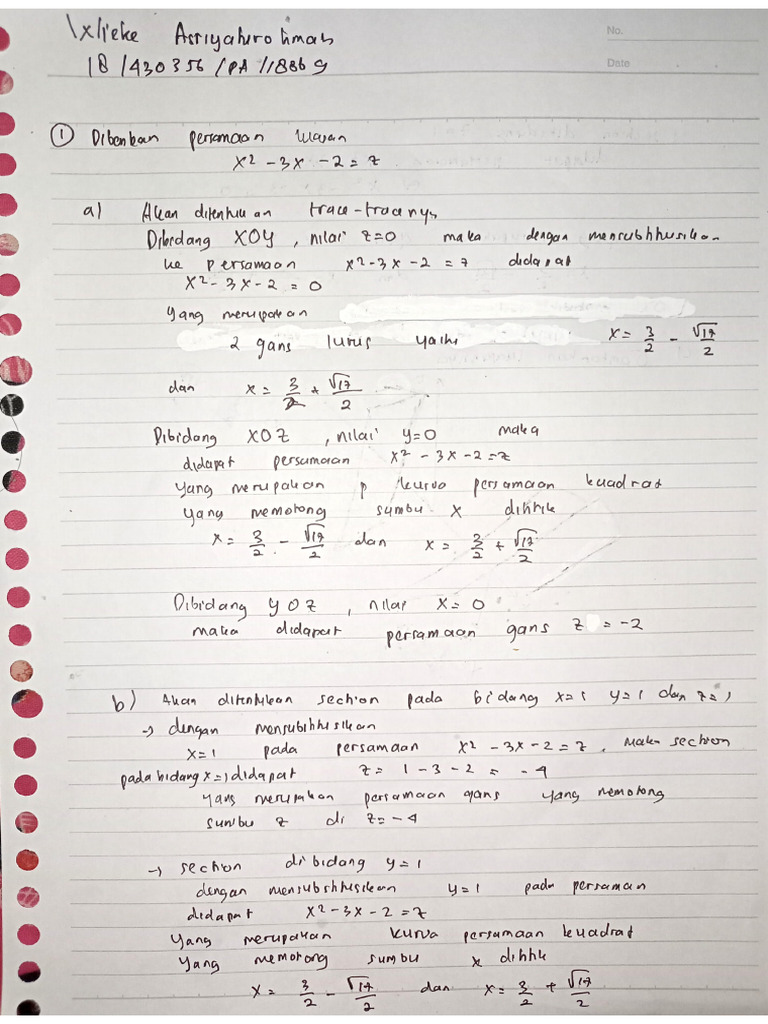 Asriyaturo himah
No.
18/430356/PA/18869
Date
① Diberikan persamaan luasan
x² - 3x - 2 = z
a) Akan ditentukan trace-tracenya
Dibidang XOY, nilai z=0 maka dengan mensubtitusikan
ke persamaan x² - 3x - 2 = z didapat
x² - 3x - 2 = 0
yang merupakan
2 garis lurus yaitu x = 3/2 - √17/2
dan x = 3/2 + √17/2
Dibidang XOZ, nilai y=0 maka
didapat persamaan x² - 3x - 2 = z
yang merupakan p kurva persamaan kuadrat
yang memotong sumbu x dititik
x = 3/2 - √17/2 dan x = 3/2 + √17/2
Dibidang YOZ, nilai x=0
maka didapat persamaan garis z = -2
b) Akan ditentukan section pada bidang x=1 y=1 dan z=1
→ dengan mensubtitusikan
x=1 pada persamaan x² - 3x - 2 = z, maka section
pada bidang x=1 didapat z = 1 - 3 - 2 = -4
yang merupakan persamaan garis yang memotong
sumbu z di z = -4
→ section dibidang y=1
dengan mensubtitusikan y=1 pada persaman
didapat x² - 3x - 2 = z
yang merupakan kurva persamaan kuadrat
yang memotong sumbu x dititik
x = 3/2 - √17/2 dan x = 3/2 + √17/2